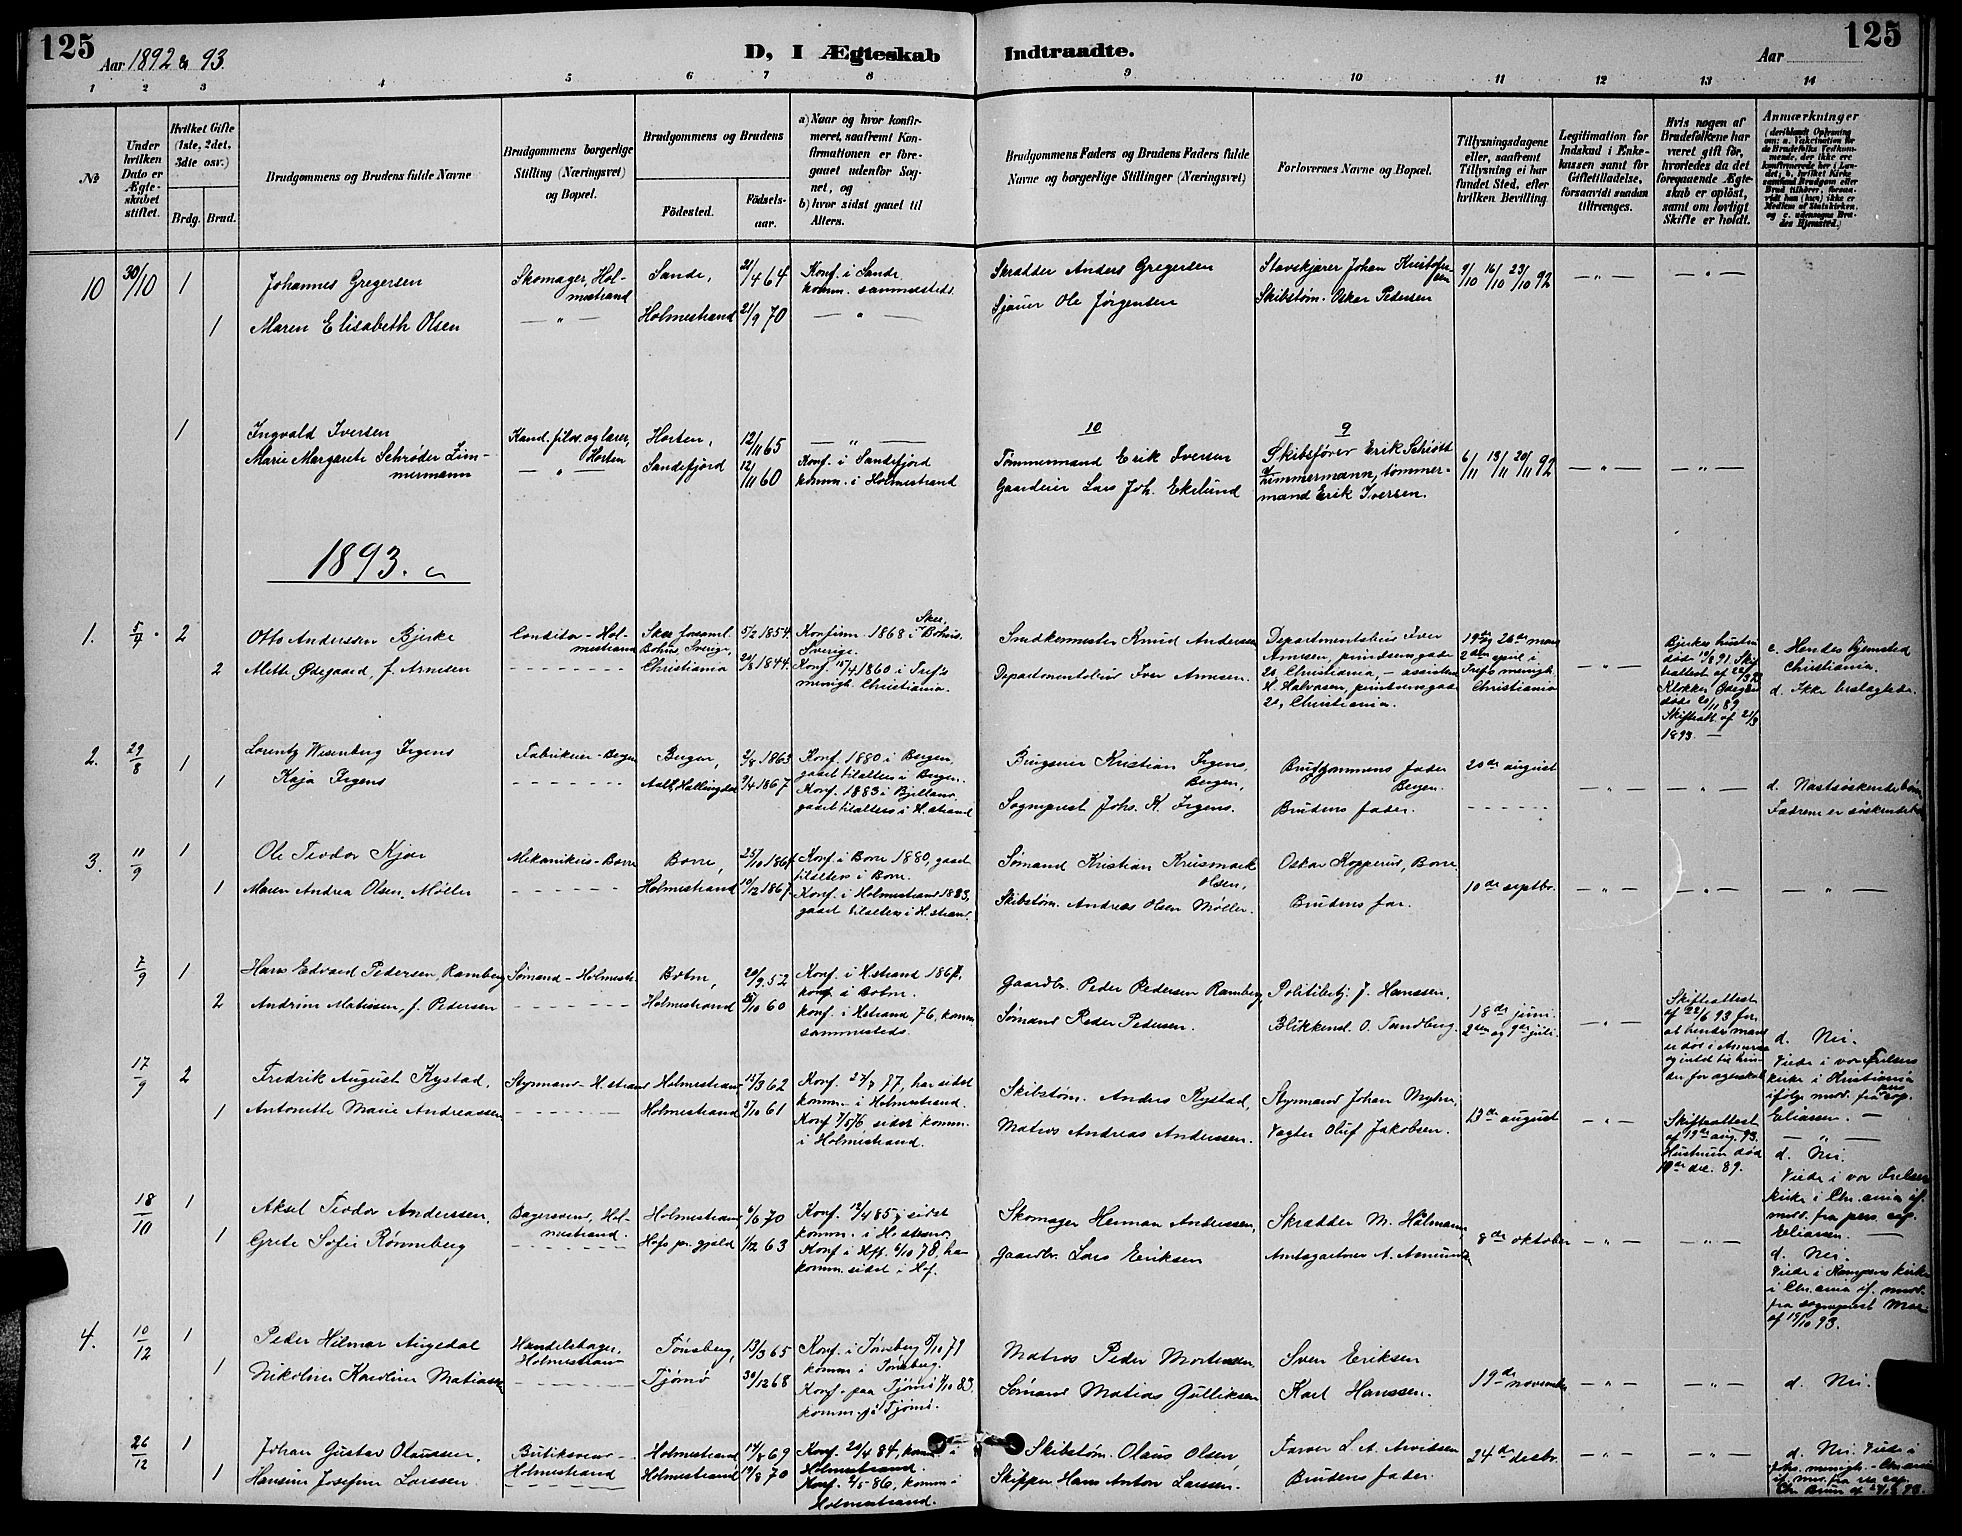 125
Aar 1892 & 93.
D, I Ægteskab Indtraadte.
Aar
125
1 2 3 4 5 6 7 8 9 10 11 12 13 14
No
Under hvilken Dato er Ægteskabet stiftet.
Hvilket Gifte (1ste, 2det, 3die osv.)
Brdg. Brud.
Brudgommens og Brudens fulde Navne
Brudgommens borgerlige Stilling (Næringsvei) og Bopæl.
Brudgommens og Brudens
Födested.
Födselsaar.
a) Naar og hvor konfirmeret, saafremt Konfirmationen er foregaaet udenfor Sognet, og
b) hvor sidst gaaet til Alters.
Brudgommens Faders og Brudens Faders fulde Navne og borgerlige Stillinger (Næringsvei)
Forlovernes Navne og Bopæl.
Tillysningsdagene eller, saafremt Tillysning ei har fundet Sted, efter hvilken Bevilling.
Legitimation for Indskud i Enkekassen samt for Giftetilladelse, forsaavidt saadan tiltrænges.
Hvis nogen af Brudefolkene har været gift før, hvorledes da det foregaaende Ægteskab er opløst, samt om lovligt Skifte er holdt.
Anmærkninger
(deriblandt Oplysning om: a. Vakcination for de Brudefolks Vedkommende, der ikke ere konfirmerede her i Landet; b. hvilket Kirkesamfund Brudgom eller Brud tilhører, forsaavidt han (hun) ikke er Medlem af Statskirken, og c. udensogns Brudes Hjemsted.)
10 30/10 1 Johannes Gregersen
Skomager, Holmestrand
Sande, 21/4 64
Konf. i Sande
komm. sammesteds.
Skrædder Anders Gregersen
Slavskjærer Johan Kristofersen
9/10 16/10 23/10 92
1 Maren Elisabeth Olsen
Holmestrand 21/9 70
Sjauer Ole Jørgensen
Skibstøm. Oskar Pedersen
1 Ingvald Iversen
Kand. filos. og lærer, Horten
Horten, 12/11 65
10
Tømmermand Erik Iversen
9
Skibsfører Erik Schiøtt Zimmermann, tømmermand Erik Iversen.
6/11 13/11 20/11 92
Marie Margarete Schrøder Zimmermann
Sandefjord 12/11 60
Konf. i Sandefjord
komm. i Holmestrand
Gaardeier Lars Joh. Ekelund
1893.
1. 5/4. 2 Otto Anderssøn Bjerke
Conditor - Holmestrand
Skee forsaml. Bohus, Sverige, 5/2 1854.
Konfirm. 1868 i Skee, Bohus. Sverige.
Snedkermester Knud Anderssen
Departementsbud Iver Arnesen, prindsensgade 20, Christiania, - assistent H. Halvorsen, prinsensgade 20, Christiania.
19de og 26de mars 2den april i Trefs menigh. Christiania
Bjerkes hustru døde 19/8 91
c. Hendes hjemsted Christiania.
d. Ikke beslægtede.
2 Alette Ødegaard, f. Arnesen
Christiania 20/8 1844.
Konf. 15/4 1860 i Trefs menigh. Christiania.
Departementsbud Iver Arnesen.
1893.
2. 29/8 1 Lorentz Wesenberg Irgens
Fabrikeier - Bergen
Bergen, 2/8 1863
Konf. 1880 i Bergen,
gaaet til alters i Bergen.
Brugseier Kristian Irgens, Bergen,
Brudgommens fader Bergen.
20de august
1 Kaja Irgens
Aal, Hallingdal 2/4 1867
Konf. 1883 i Bjelland,
gaaet til alters i H.strand
Sogneprest Johs. K. Irgens.
Brudens fader.
d. Næstsøskendebørn
Fædrene er søskendebørn
3. 11/9 1 Ole Teodor Kjær
Mekanikus - Borre
Borre, 25/10 1864
Konf. i Borre 1880, gaaet til alters i Borre.
Sømand Kristian Krusmark Olsen,
Oskar Kopperud, Borre
1 Maren Andrea Olsen, Møller
Holmestrand 10/12 1867
Konf. i Holmestrand 1883, gaaet til alters i H.strand.
Skibstøm. Andreas Olsen Møller.
Brudens far.
10de septbr.
7/9 1 Hans Edvard Pedersen, Ramberg
Sømand - Holmestr.
Botne, 20/9 52
Konf. i H.strand 1867,
komm. i Botne.
Gaardbr. Peder Pedersen Ramberg
Politibetj. J. Hanssen,
18de juni.
2den og 9de juli.
2 Andrine Matissen, f. Pedersen
Holmestrand 25/10 60
Konf. i H.strand 76, komm. sammesteds.
Sømand Peder Pedersen.
Blikkensl. O. Tandberg.
Skifteattest af 22/6 93 for, at hendes mand er død i Amerika
d. Nei.
Viede i vor Frelsers kirke i Kristiania ifølge med. fra pers. cap. Eliassen.
17/9 2 Fredrik August Rystad,
Styrmand - H.strand
Holmestrand 12/3 62
Konf. 27/7 77, har sidst komm. i Holmestrand.
Skibstøm. Anders Rystad,
Styrmand Johan Myhre,
13de august
1 Antonette Marie Andreassen
Holmestrand 5/10 61
Konf. 7/5 76, sidst komm. i Holmestrand.
Matros Andreas Anderssen.
Vagter Oluf Jakobsen.
Skifteattest af 19de aug. 93. Hustruen død 19de dec. 89.
d. Nei.
Viede i vor Frelsers kirke i Chr.ania if. med. fra pers. cap. Eliassen.
18/10 1 Aksel Teodor Anderssen,
Bagersvend, Holmestrand.
Holmestrand 6/6 70
Konf. 12/4 85, sidst komm. i H.strand.
Skomager Herman Anderssen,
Skrædder M. Halmann,
1 Grete Sofie Rønneberg
Hofs pr.gjeld 1/12 63
Konf. i Hof 6/10 78, har komm. sidst i Hof.
Gaardbr. Lars Eriksen
Amtsgartner A. Amunds
8de oktober
d. Nei.
Viede i Kampens kirke i Chr.ania if. med. fra sogneprest
af 19/10 93.
4. 10/12 1 Peder Hilmar Augedal
Handelsbager, Holmestrand
Tønsberg, 13/3 65
Konf. i Tønsberg 5/10 79
komm. i Tønsberg.
Matros Peder Mortensen
Sven Eriksen
1 Nikoline Karoline Matiassen
Tjømø 30/12 68
Konf. paa Tjømø 7/10 83.
komm. på Tjømø.
Sømand Matias Gulliksen
Karl Hanssen.
19de november
d. Nei.
26/12 1 Johan Gustav Olaussen,
Butiksvend - Holmestrand
Holmestrand 14/8 69
Konf. 20/4 84, komm. i Holmestrand.
Skibstøm. Olaus Olsen
Farver L. A. Arvidsen
24de desbr.
1 Hansine Josefine Larssen
Holmestrand 19/8 70
Konf. 2/5 86, komm. i Holmestrand.
Skipper Hans Anton Larssen.
Brudens fader.
d. Nei. Viede i Johs. menigh. - Chr.ania